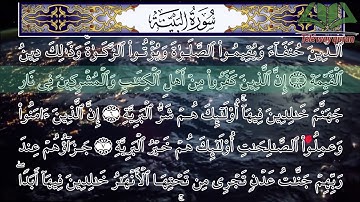 سُورَةُ البَيِّنَةِ
ٱلدِّينَ حُنَفَآءَ وَيُقِيمُوا۟ ٱلصَّلَوٰةَ وَيُؤْتُوا۟ ٱلزَّكَوٰةَ وَذَٰلِكَ دِينُ
ٱلْقَيِّمَةِ إِنَّ ٱلَّذِينَ كَفَرُوا۟ مِنْ أَهْلِ ٱلْكِتَٰبِ وَٱلْمُشْرِكِينَ فِى نَارِ
جَهَنَّمَ خَٰلِدِينَ فِيهَآ أُو۟لَٰٓئِكَ هُمْ شَرُّ ٱلْبَرِيَّةِ إِنَّ ٱلَّذِينَ ءَامَنُوا۟
وَعَمِلُوا۟ ٱلصَّٰلِحَٰتِ أُو۟لَٰٓئِكَ هُمْ خَيْرُ ٱلْبَرِيَّةِ جَزَآؤُهُمْ عِندَ
رَبِّهِمْ جَنَّٰتُ عَدْنٍ تَجْرِى مِن تَحْتِهَا ٱلْأَنْهَٰرُ خَٰلِدِينَ فِيهَآ أَبَدًا ۖ